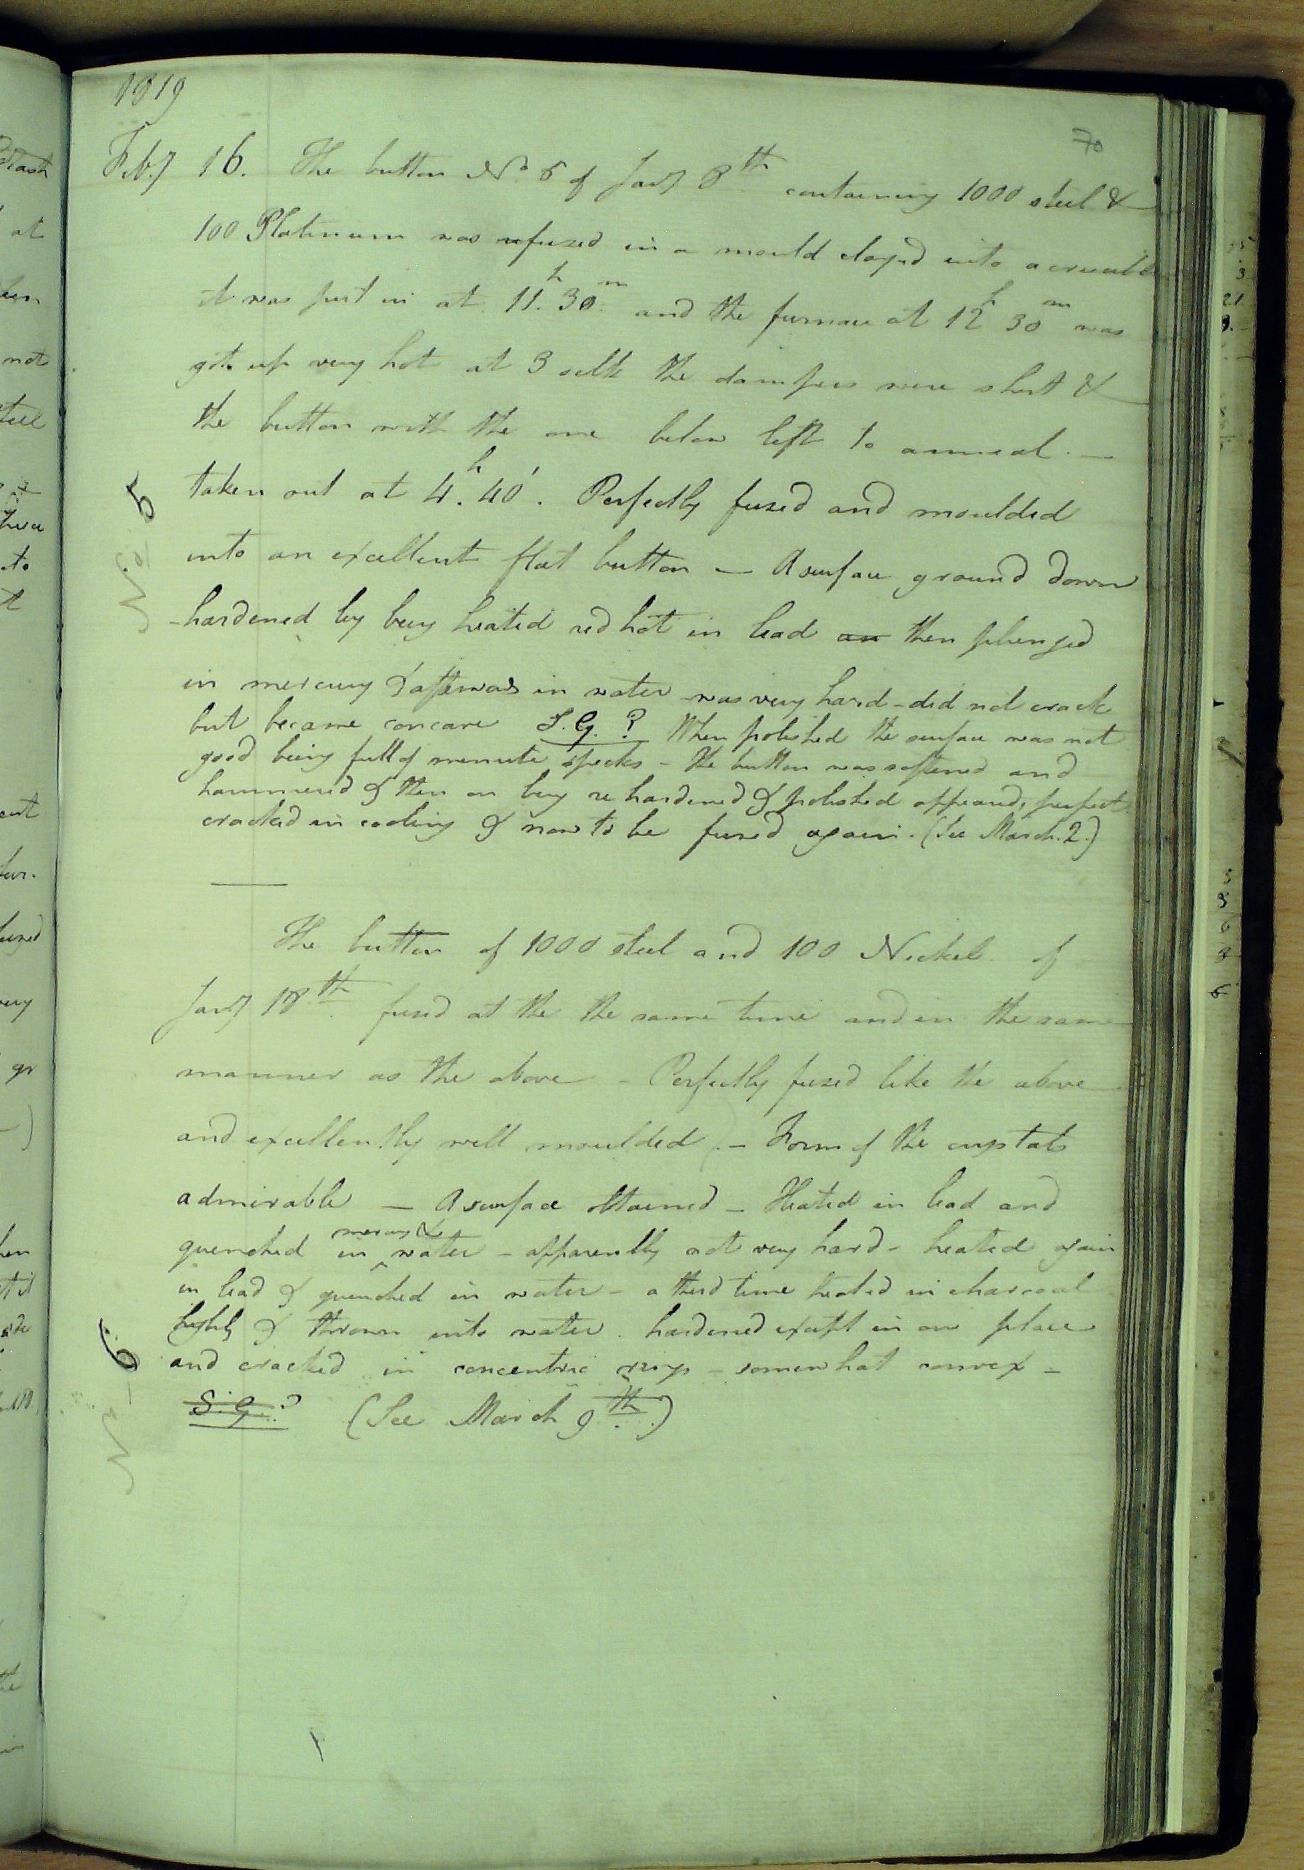 1819
70
Feby 16. The button No 5 of Jany 8th containing 1000 steel &
100 Platinum was refused in a mould clayed into a crucible
it was put in at 11h.30m and the furnace at 12h 30m was
got up very hot at 3 oclk the dampers were shut &
the button with the one below left to anneal. —
taken out at 4h.40'. Perfectly fused and moulded
No 5
into an excellent flat button — A surface ground down
hardened by being heated red hot in lead an then plunged
in mercury & afterwds in water was very hard - did not crack
but became concave S.G.? When polished the surface was not
good being full of minute specks - the button was softened and
hammered & then on being re hardened & polished appeared perfect
cracked in cooling & now to be fused again. (See March.2.)
The button of 1000 steel and 100 Nickel of
Jany 18th fused at the the same time and in the same
manner as the above - Perfectly fused like the above
and excellently well moulded - Form of the crystals
admirable — A surface obtained - Heated in lead and
quenched in mercury & water - apparently not very hard - heated again
in lead & quenched in water - a third time heated in charcoal
highly & thrown into water. hardened except in one place
No 6
and cracked in concentric rings - somewhat convex -
S.G.? (See March 9th.)